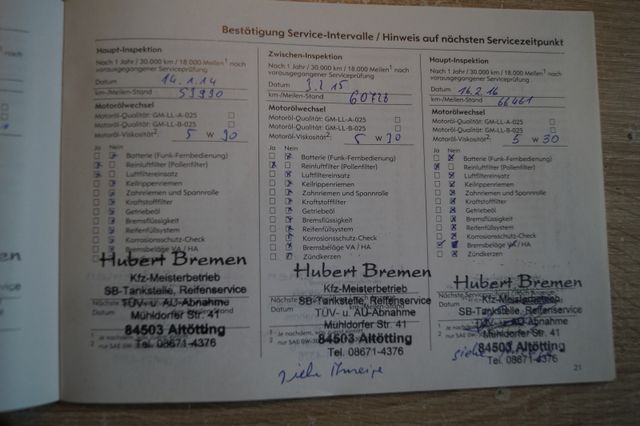 Bestätigung Service-Intervalle / Hinweis auf nächsten Servicezeitpunkt
Haupt-Inspektion
Nach 1 Jahr / 30.000 km / 18.000 Meilen¹ nach
vorausgegangener Serviceprüfung
Datum 14.1.14
km-/Meilen-Stand 53990
Motorölwechsel
Motoröl-Qualität: GM-LL-A-025
Motoröl-Qualität: GM-LL-B-025
Motoröl-Viskosität²: 5 W 30
Ja Nein
Batterie (Funk-Fernbedienung)
Reinluftfilter (Pollenfilter)
Luftfiltereinsatz
Keilrippenriemen
Zahnriemen und Spannrolle
Kraftstofffilter
Getriebeöl
Bremsflüssigkeit
Reifenfüllsystem
Korrosionsschutz-Check
Bremsbeläge VA / HA
Hubert Bremen
Kfz-Meisterbetrieb
SB-Tankstelle, Reifenservice
TÜV- u. AU-Abnahme
Mühldorfer Str. 41
84503 Altötting
Tel. 08671-4376
Zwischen-Inspektion
Nach 1 Jahr / 30.000 km / 18.000 Meilen¹ nach
vorausgegangener Serviceprüfung
Datum 3.2.15
km-/Meilen-Stand 60728
Motorölwechsel
Motoröl-Qualität: GM-LL-A-025
Motoröl-Qualität: GM-LL-B-025
Motoröl-Viskosität²: 5 W 30
Ja Nein
Batterie (Funk-Fernbedienung)
Reinluftfilter (Pollenfilter)
Luftfiltereinsatz
Keilrippenriemen
Zahnriemen und Spannrolle
Kraftstofffilter
Getriebeöl
Bremsflüssigkeit
Reifenfüllsystem
Korrosionsschutz-Check
Bremsbeläge VA / HA
Zündkerzen
Hubert Bremen
Kfz-Meisterbetrieb
SB-Tankstelle, Reifenservice
TÜV- u. AU-Abnahme
Mühldorfer Str. 41
84503 Altötting
Tel. 08671-4376
siehe
Haupt-Inspektion
Nach 1 Jahr / 30.000 km / 18.000 Meilen¹ nach
vorausgegangener Serviceprüfung
Datum 16.2.16
km-/Meilen-Stand 66461
Motorölwechsel
Motoröl-Qualität: GM-LL-A-025
Motoröl-Qualität: GM-LL-B-025
Motoröl-Viskosität²: 5 W 30
Ja Nein
Batterie (Funk-Fernbedienung)
Reinluftfilter (Pollenfilter)
Luftfiltereinsatz
Keilrippenriemen
Zahnriemen und Spannrolle
Kraftstofffilter
Getriebeöl
Bremsflüssigkeit
Reifenfüllsystem
Korrosionsschutz-Check
Bremsbeläge VA / HA
Zündkerzen
Hubert Bremen
Kfz-Meisterbetrieb
SB-Tankstelle, Reifenservice
TÜV- u. AU-Abnahme
Mühldorfer Str. 41
84503 Altötting
Tel. 08671-4376
siehe
21